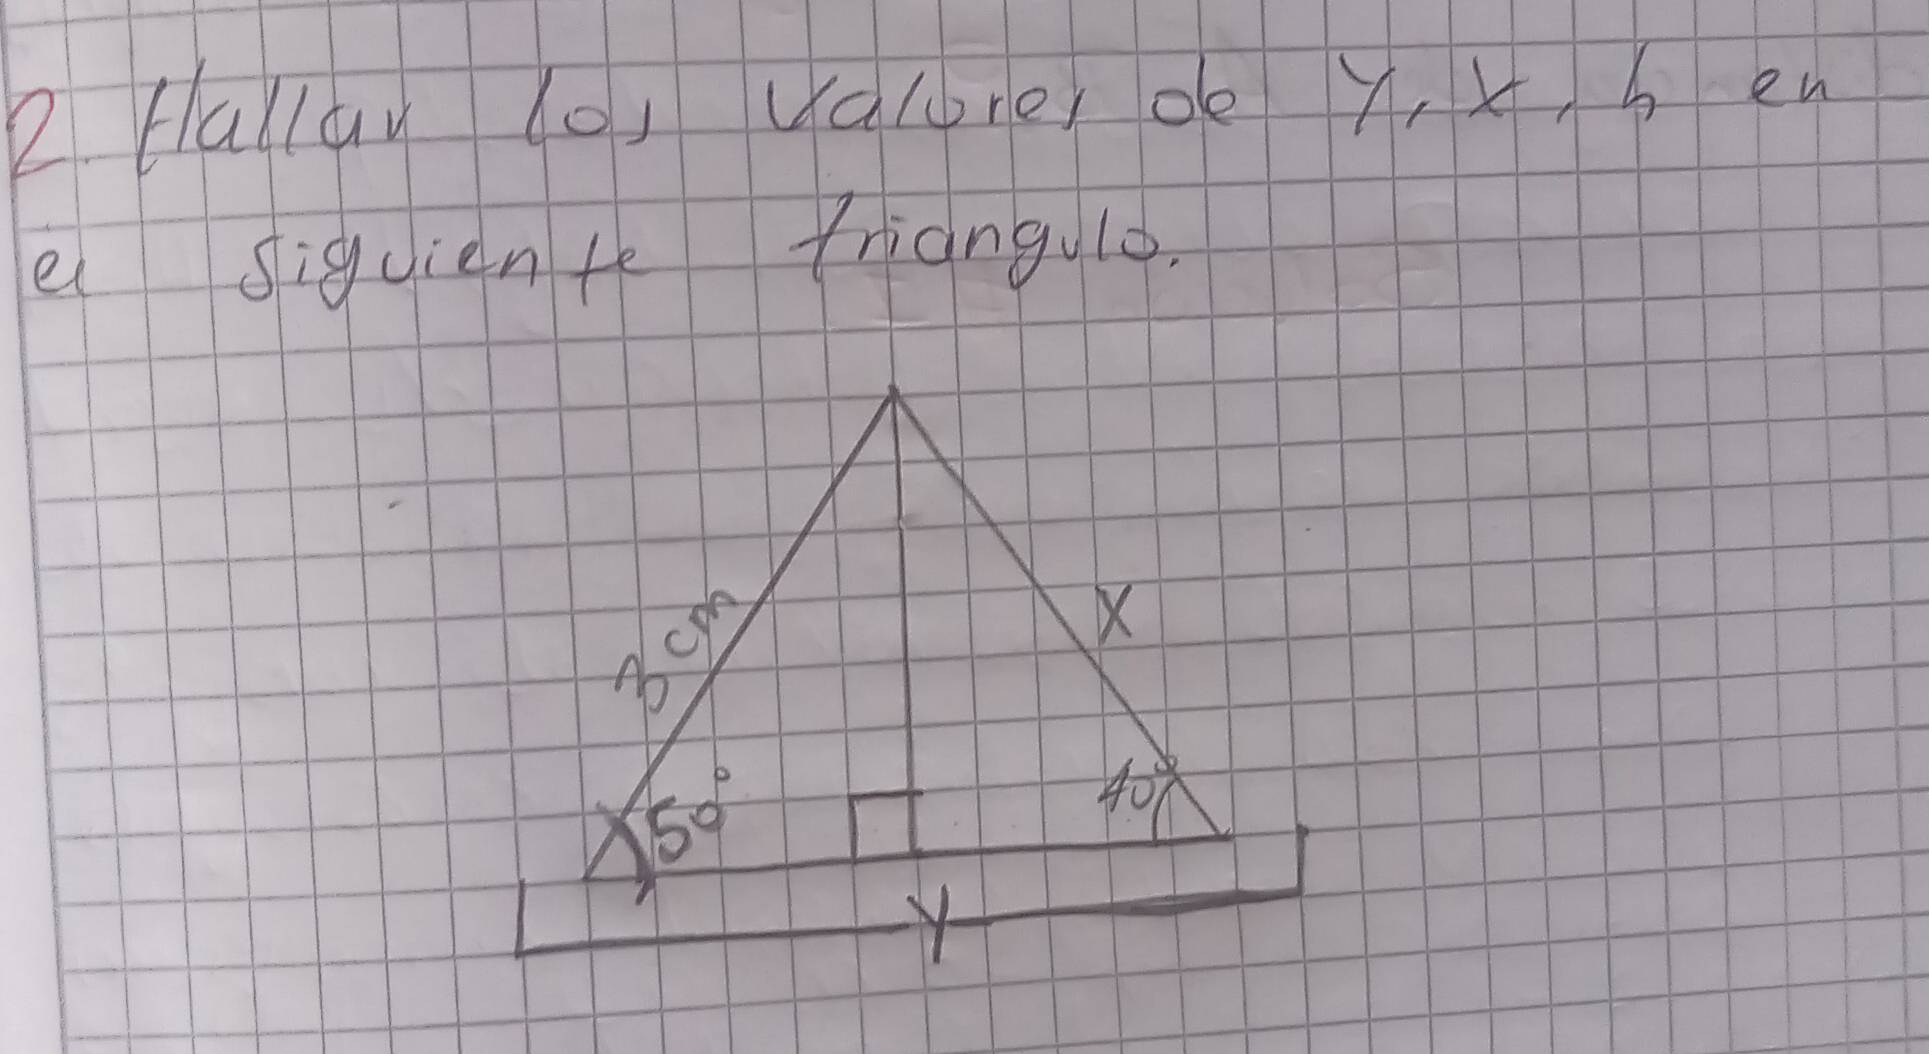 2. Hallar los valores de Y, X, h en
el siguiente triangulo.
3 cm
X
50°
40°
Y